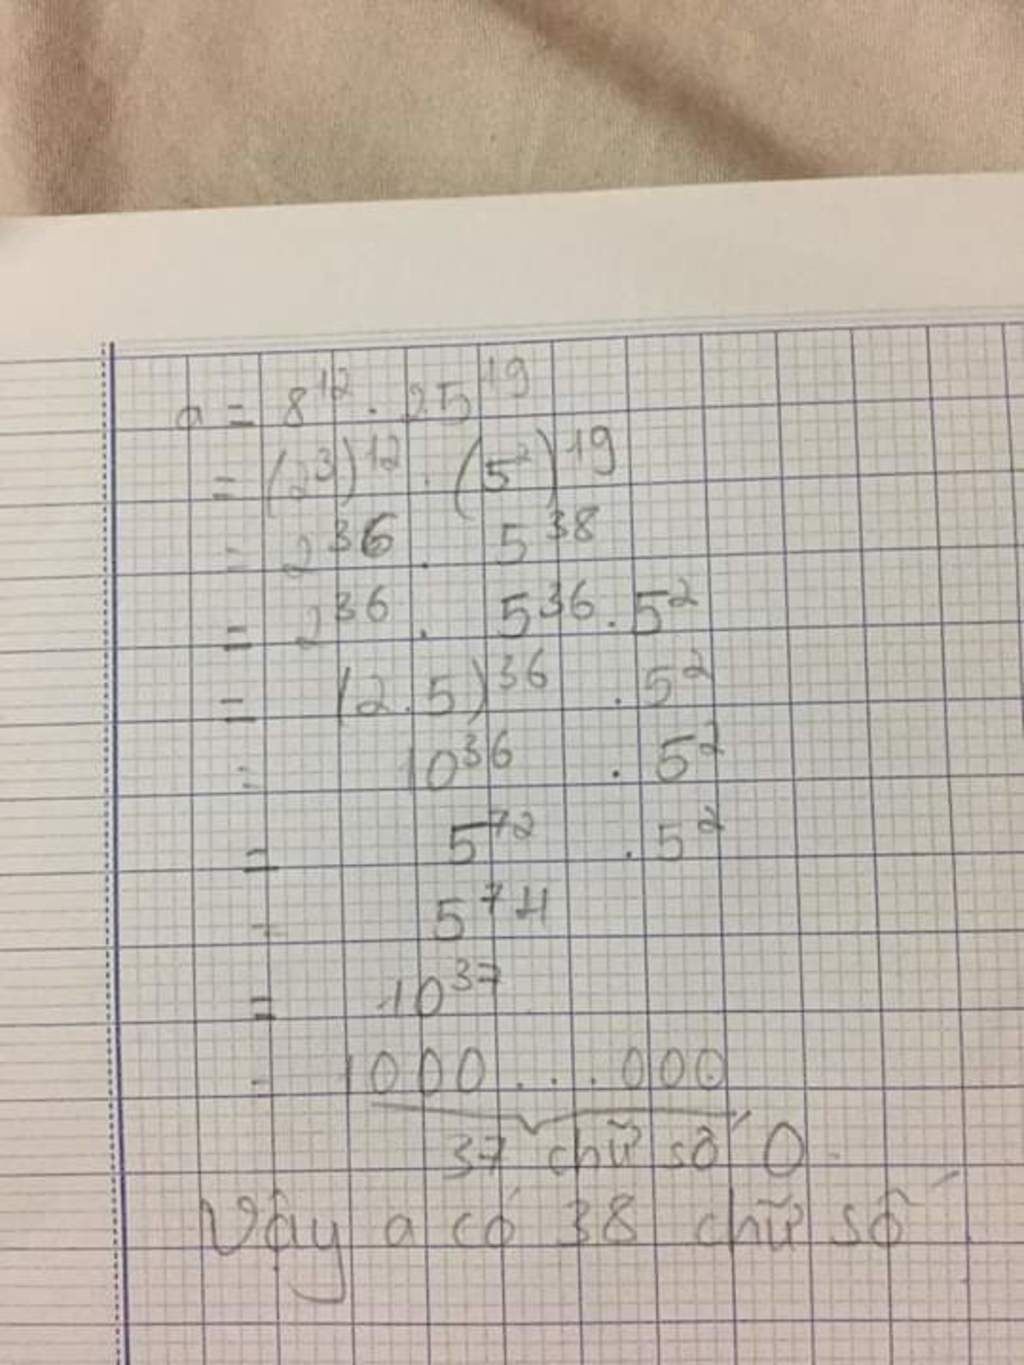 a = 8¹² . 25¹⁹
= (2³)¹² . (5²)¹⁹
= 2³⁶ . 5³⁸
= 2³⁶ . 5³⁶ . 5²
= (2.5)³⁶ . 5²
= 10³⁶ . 5²
= 5⁷² . 5²
= 5⁷⁴
= 10³⁷
= 1000...000
37 chữ số 0
Vậy a có 38 chữ số